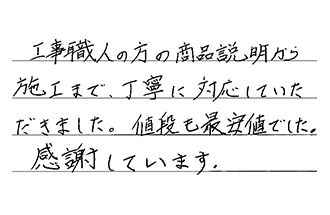 工事職人の方の商品説明から
施工まで、丁寧に対応していた
だきました。値段も最安値でした。
感謝しています.